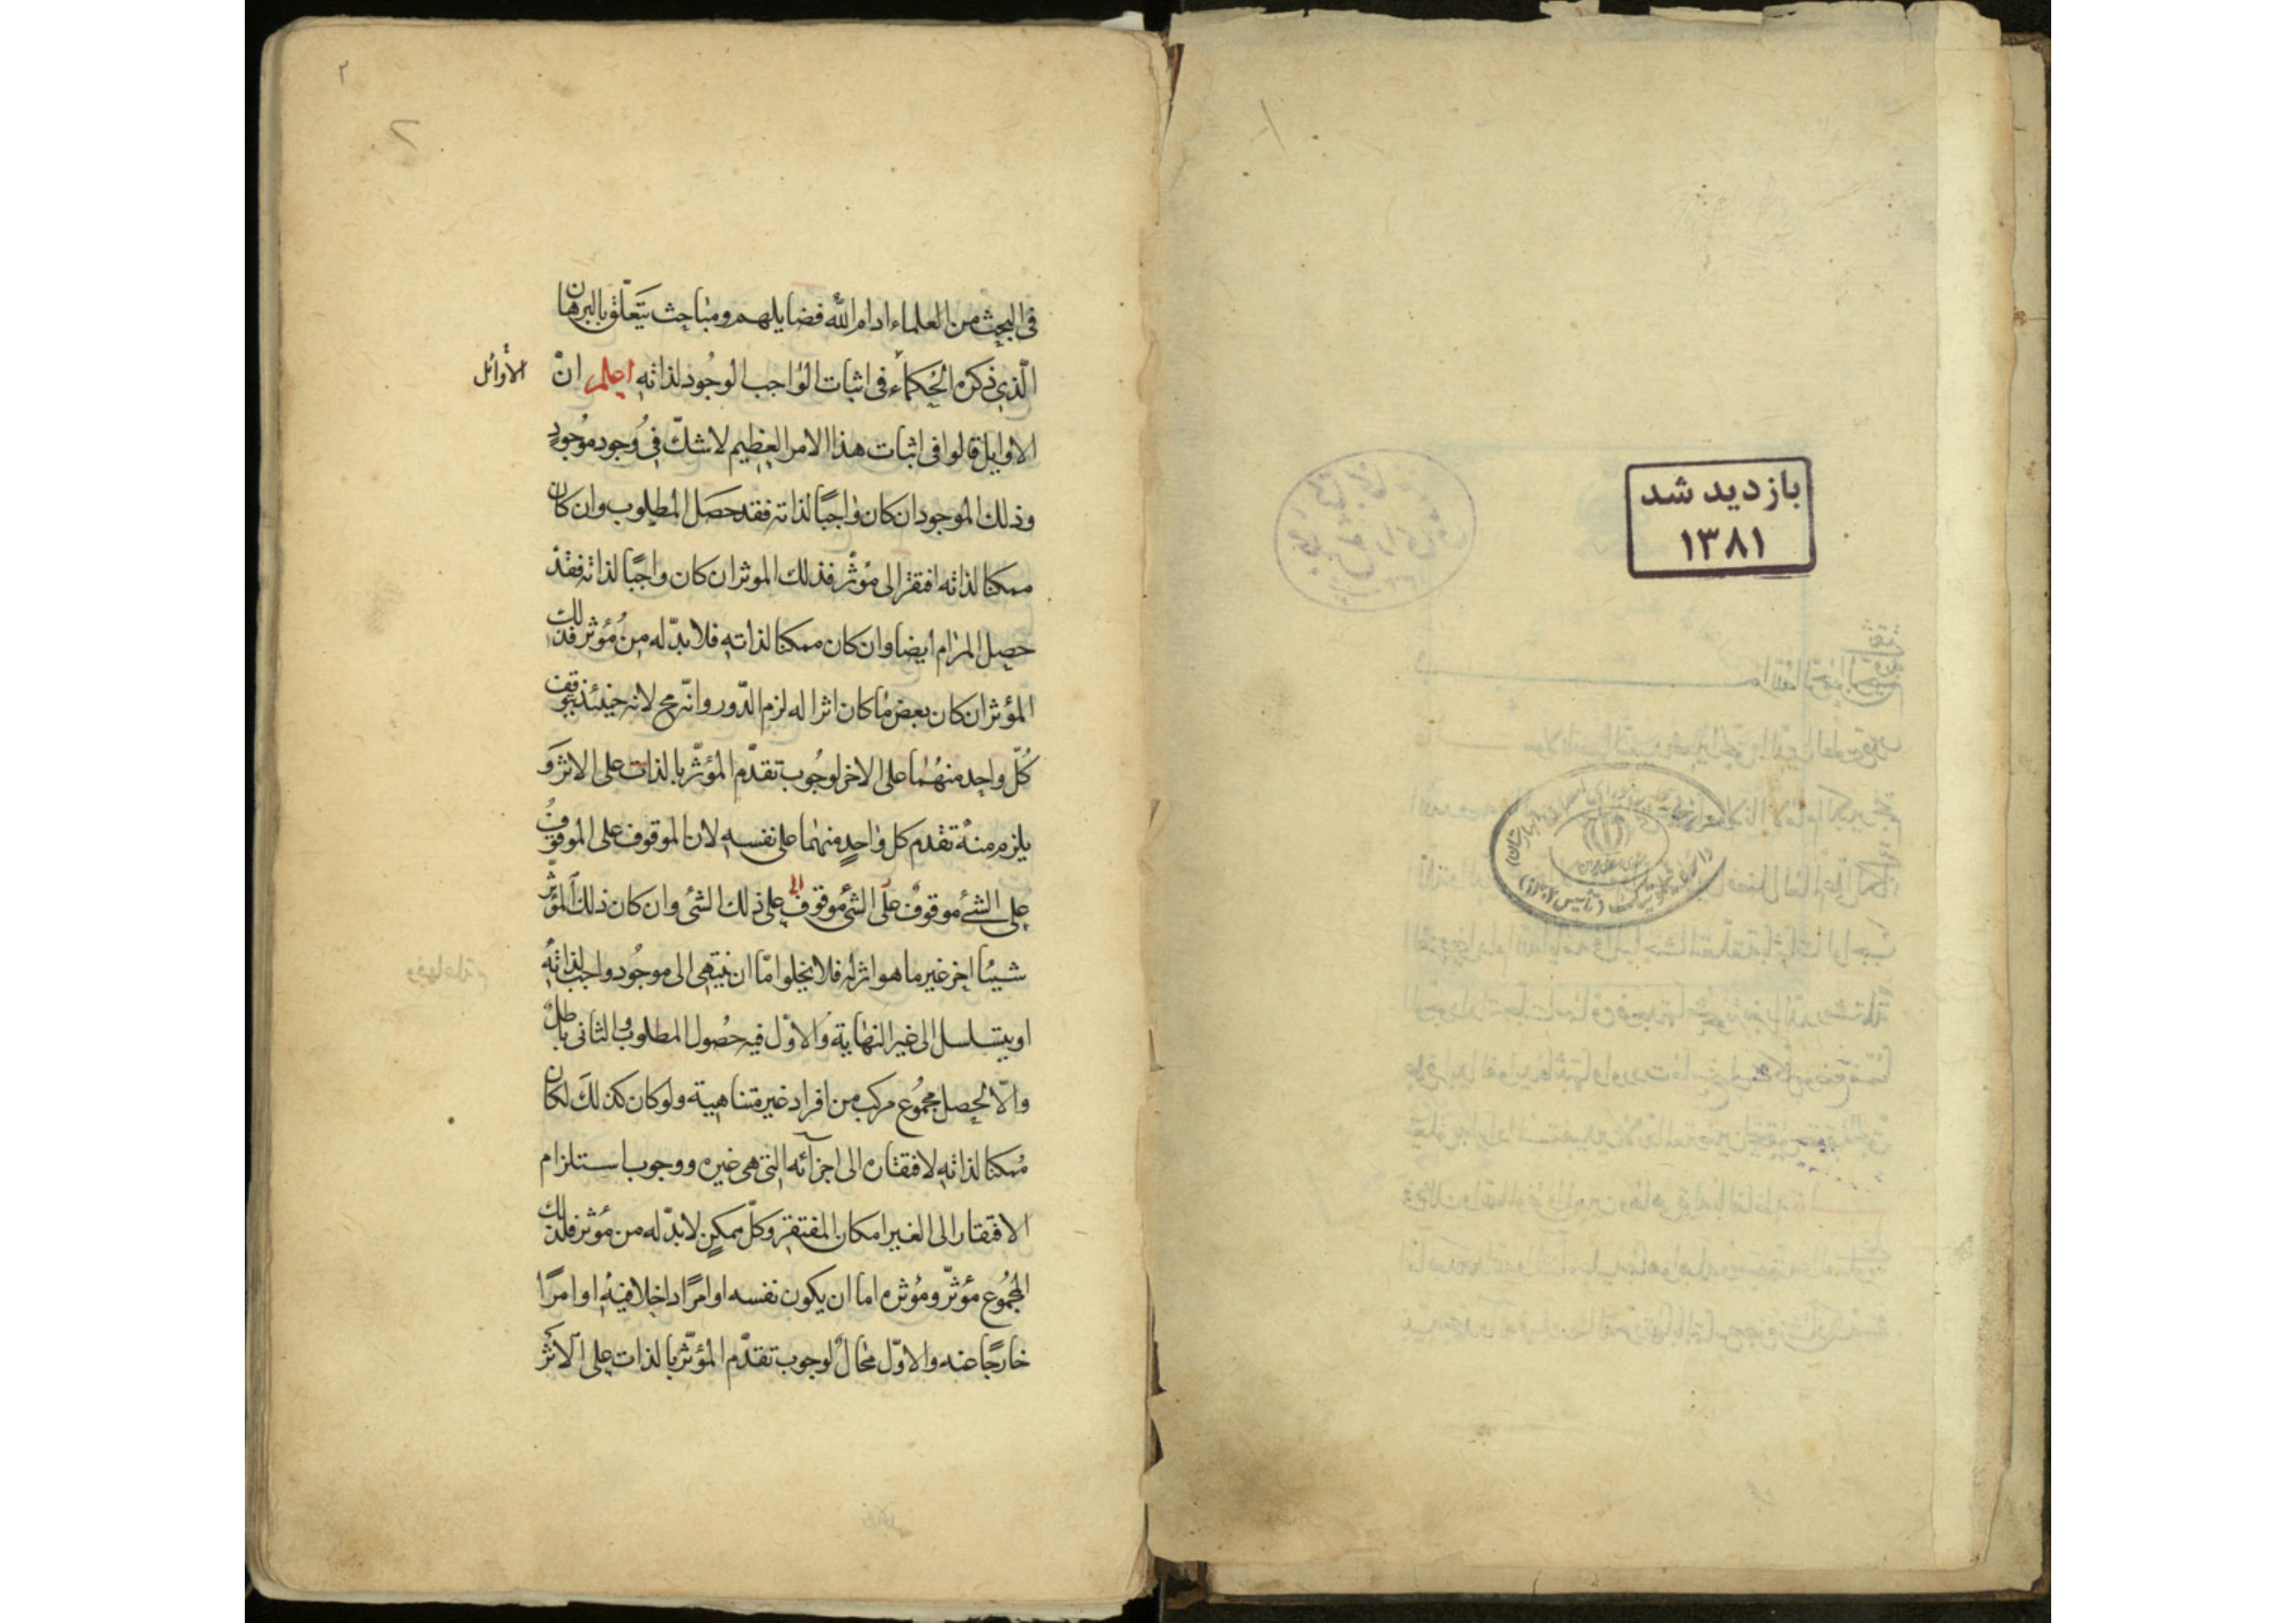 بازدید شد
۱۳۸۱
۲
فی البحث من العلماء ادام الله فضایلهم ومباحث یتعلّق بالبرهان
الّذی ذکره الحکماء فی اثبات الواجب الوجود لذاته اعلم انّ
الأوائل
الاوایل قالوا فی اثبات هذا الامر العظیم لا شکّ فی وجود موجودٍ
وذلك الموجود ان کان واجبًا لذاته فقد حصل المطلوب وان کان
ممکنا لذاته افتقر الی مؤثر فذلك الموثر ان کان واجبًا لذاته فقد
حصل المرام ایضا وان کان ممکنا لذاته فلا بدّ له من مؤثر فذلك
المؤثر ان کان بعض ما کان اثرا له لزم الدّور وانّه مح لانه حینئذ یتوقف
کلّ واحد منهما علی الاخر لوجوب تقدّم المؤثّر بالذات علی الاثر و
یلزم منه تقدم کل واحدٍ منهما علی نفسه لان الموقوف علی الموقوف
علی الشئ موقوف علی الشئ موقوف علی ذلك الشئ وان کان ذلك المؤثّر
شیئا اخر غیر ما هو اثر له فلا یخلو امّا ان ینتهی الی موجود واجب لذاته
او یتسلسل الی غیر النهایة والاوّل فیه حصول المطلوب والثانی باطل
والّا لحصل مجموع مرکب من افراد غیر متناهیة ولو کان کذلك لکان
ممکنا لذاته لافتقاره الی اجزائه التی هی غیره ووجوب استلزام
الافتقار الی الغیر امکان المفتقر وکلّ ممکن لا بدّ له من مؤثر فلذلك
المجموع مؤثّر ومؤثره اما ان یکون نفسه او امرًا داخلا فیه او امرًا
خارجًا عنه والاوّل محالٌ لوجوب تقدّم المؤثّر بالذات علی الاثر